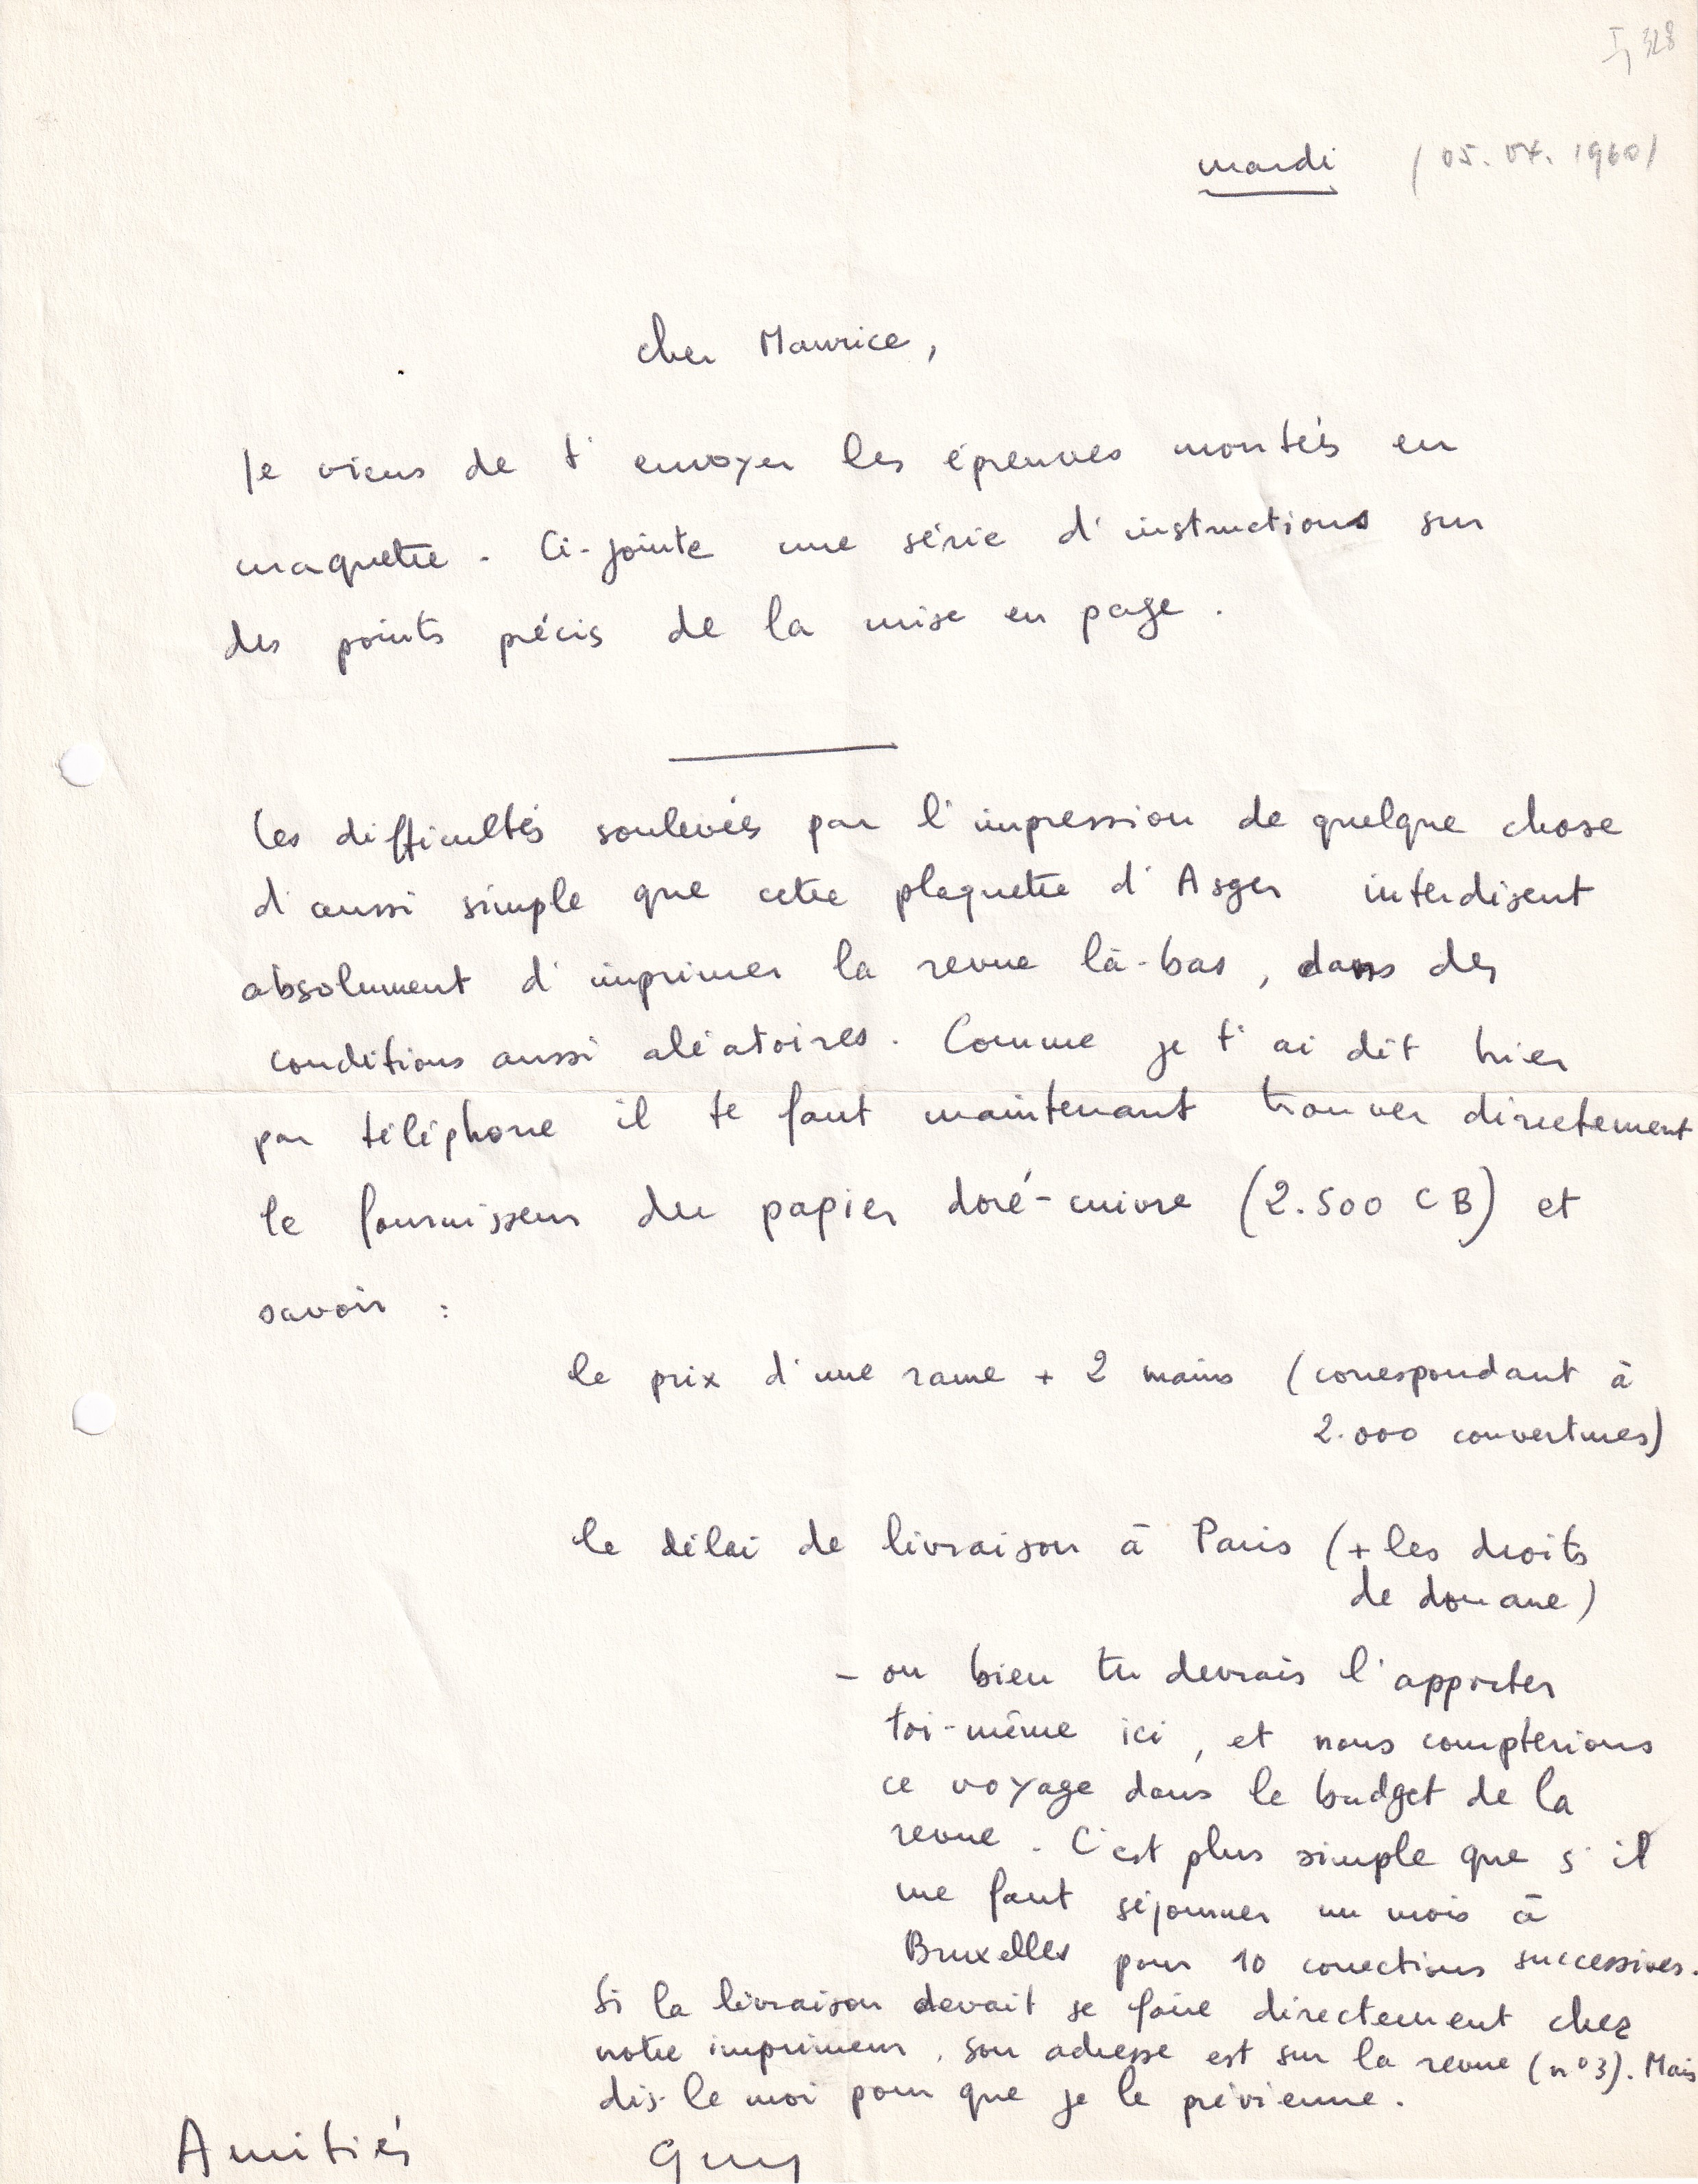 I, 328
mardi (05.04.1960)
cher Maurice,
Je viens de t'envoyer les épreuves montées en
maquette. Ci-jointe une série d'instructions sur
des points précis de la mise en page.
Les difficultés soulevées par l'impression de quelque chose
d'aussi simple que cette plaquette d'Asger interdisent
absolument d'imprimer la revue là-bas, dans des
conditions aussi aléatoires. Comme je t'ai dit hier
par téléphone il te faut maintenant trouver directement
le fournisseur du papier doré-cuivre (2.500 CB) et
savoir :
le prix d'une rame + 2 mains (correspondant à
2.000 couvertures)
le délai de livraison à Paris (+ les droits
de douane)
- ou bien tu devrais l'apporter
toi-même ici, et nous compterions
ce voyage dans le budget de la
revue. C'est plus simple que s'il
me faut séjourner un mois à
Bruxelles pour 10 corrections successives.
Si la livraison devait se faire directement chez
notre imprimeur, son adresse est sur la revue (n°3). Mais
dis-le moi pour que je le prévienne.
Amitiés Guy